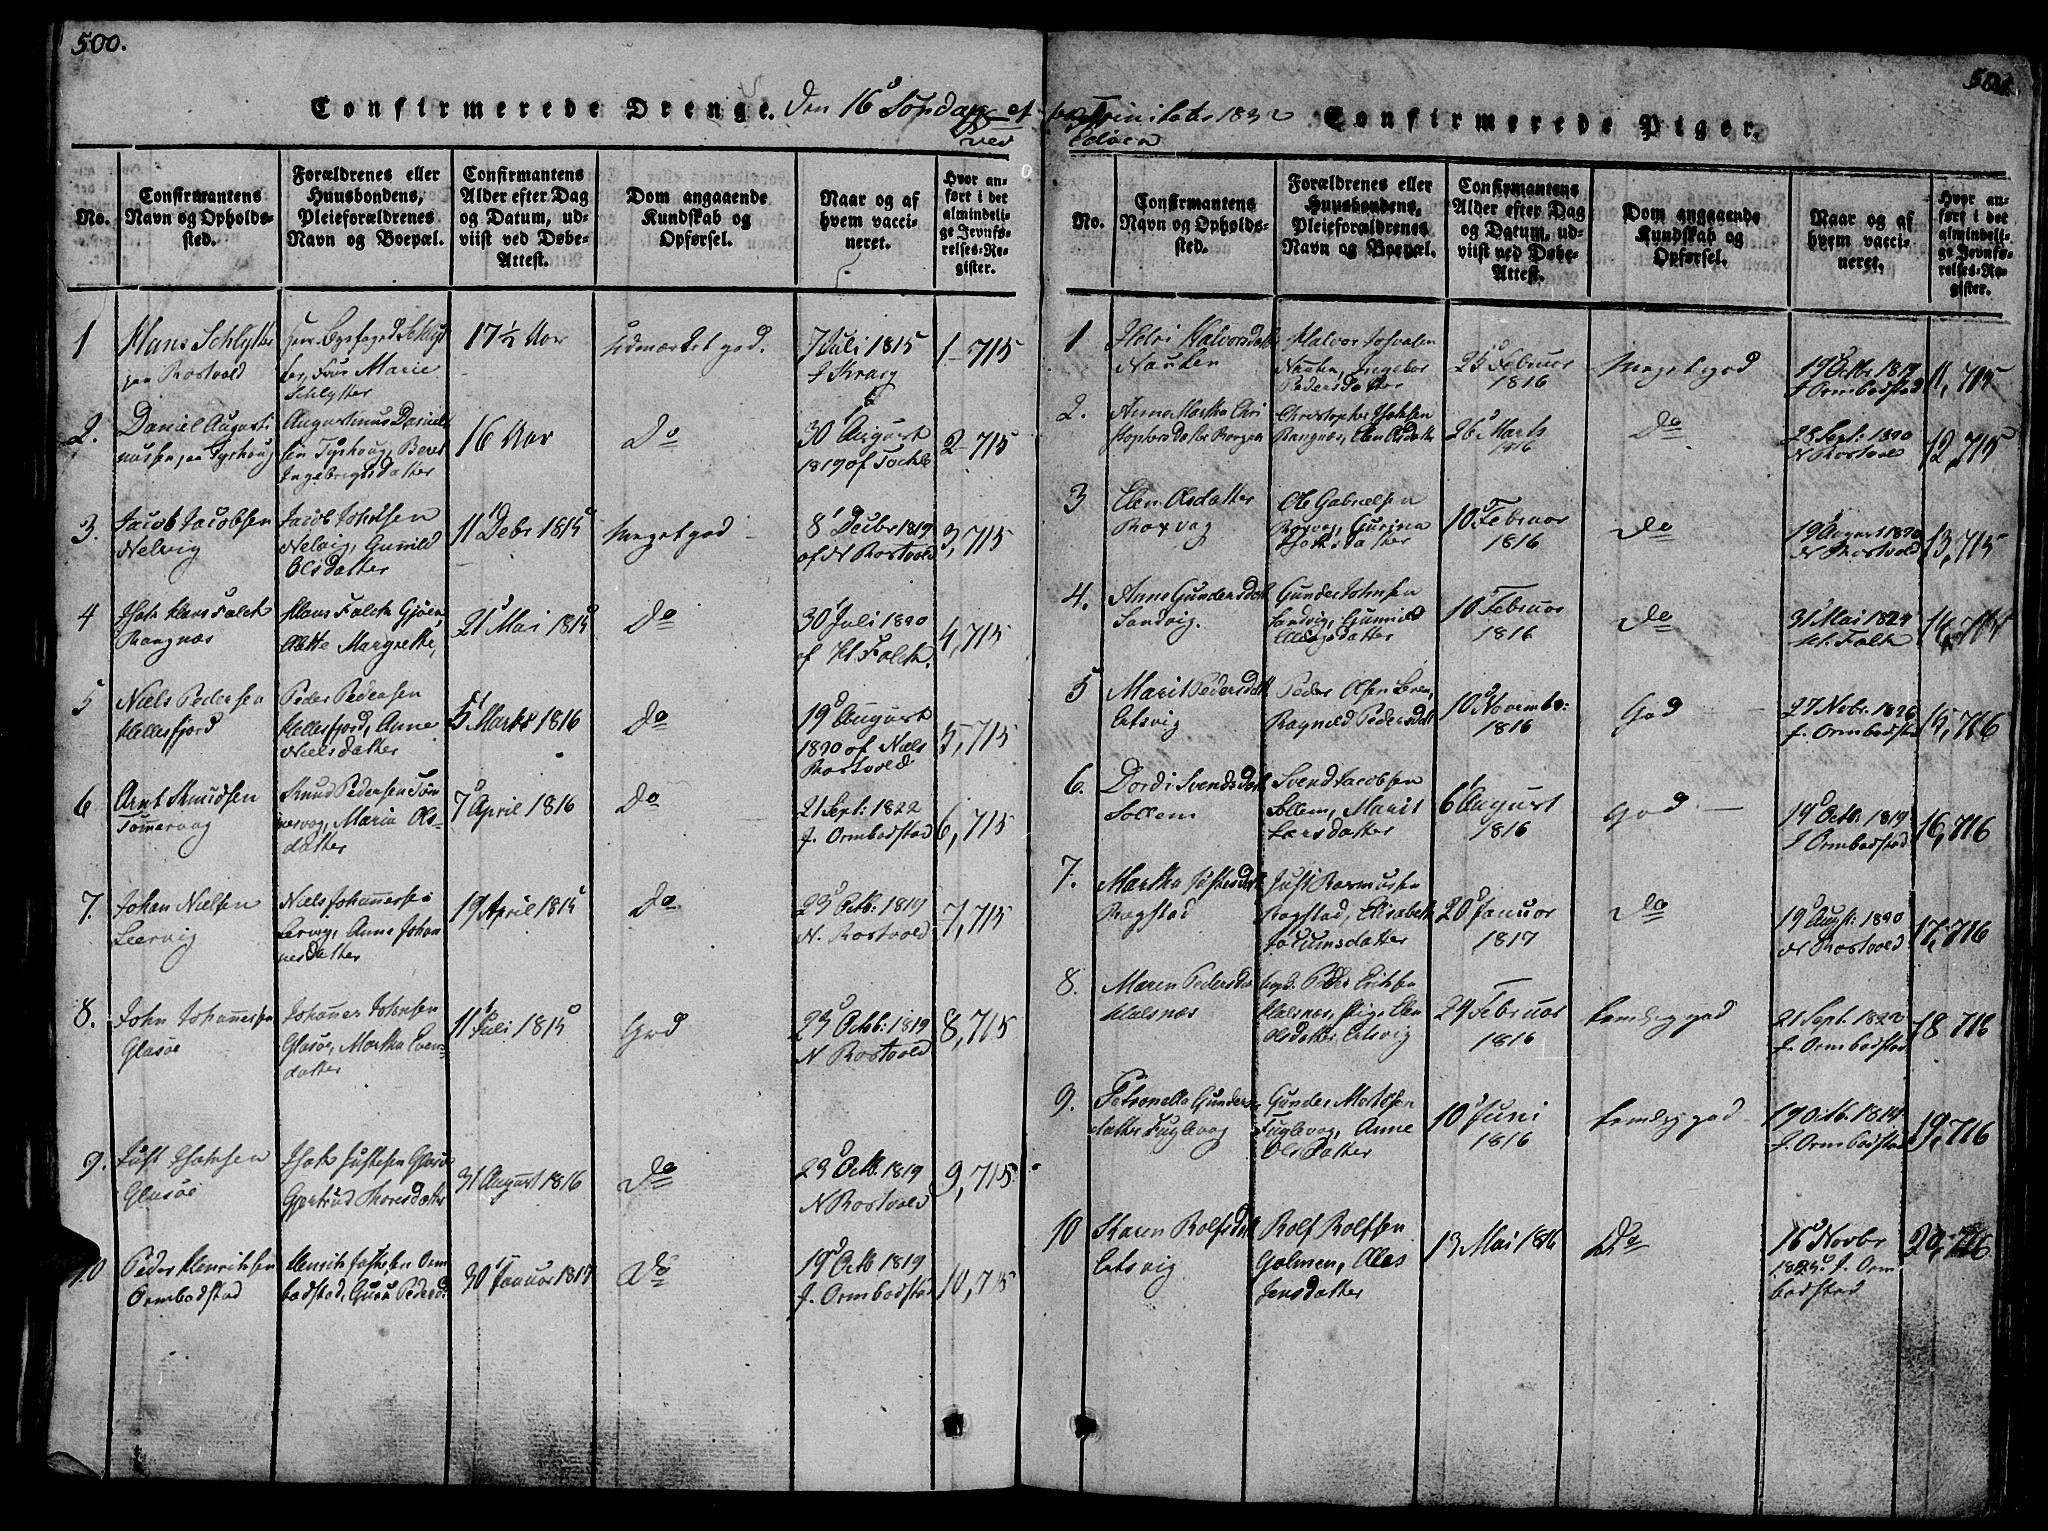 500.
Confirmerede Drenge. Den 16d Søndag ef-
ved
No.
Confirmantens
Navn og Opholds-
sted.
Forældrenes eller
Huusbondens,
Pleieforældrenes
Navn og Boepæl.
Confirmantens
Alder efter Dag
og Datum, ud-
viist ved Døbe-
Attest.
Dom angaaende
Kundskab og
Opførsel.
Naar og af
hvem vacci-
neret.
Hvor an-
ført i det
almindeli-
ge Jevnfø-
relses-Re-
gister.
1
Hans Schlytter
paa Rostvold
Schlyt
ter, Marie
Schlytter
17½ Aar
Udmærket god.
7 Juli 1815
1-715
2.
Daniel Augusti
nussen paa Tyrhoug
Augustinus Daniel
sen Tyrhoug, Beret
Ingebrigtsdatter
16 Aar
Do
30 August
1819 of
2-715
3.
Jacob Jacobsen
Nelvig
Jacob Johnsen
Nelvig, Gunild
Olsdatter
11 Debr 1815
Meget god
8 Decbr 1819
of N Rostvold
3,715
4
Hans Falch
Rangnæs
Hans Falch Gjøen,
Margrethe,
21 Mai 1815
Do
30 Juli 1820
of H Falch.
4,715
5
Niels Pedersen
Hellesfjord
Peder Pedersen
Hellesfjord, Anne
Nielsdatter
5 Marts 1816
Do
19d August
1820 of Niels
Rostvold
5,715
6
Arnt Knudsen
Tømmervaag
Knud Pedersen Tøm
mervog, Maria Ols-
datter
7d April 1816
Do
21 Sept: 1822
J. Ormbodstad
6,715
7.
Johan Nielsen
Leervig
Niels Johannessen
Lervig, Anne Johan
nesdatter
19 April 1815
Do
23d Octb: 1819
N. Rostvold
7,715
8.
John Johannessen
Glasøe
Johannes Johnsen
Glasøe, Martha Even-
datter
11 Juli 1815
God
23d Octb: 1819
N Rostvold
8,715
9.
Just
Glasøe
Justesen Glasøe
Gjertrud Thoresdatter
31 August 1816
Do
23d Octb. 1819
N Rostvold
9,715
10
Peder Henrichsen
Ormbodstad
Henrich Justesen Orm
bodstad, Guru Pedersd:
30 Januar 1817
Do
19d Octb 1819
J. Ormbodstad
10,715
501.
ter Trinitatis 1832 Confirmerede Piger.
Edøen
No.
Confirmantens
Navn og Opholds-
sted.
Forældrenes eller
Huusbondens,
Pleieforældrenes
Navn og Boepæl.
Confirmantens
Alder efter Dag
og Datum, ud-
viist ved Døbe-
Attest.
Dom angaaende
Kundskab og
Opførsel.
Naar og af
hvem vacci-
neret.
Hvor an-
ført i det
almindeli-
ge Jevnfø-
relses-Re-
gister.
1
Halvorsdatt
Nauten
Halvor
Nauten, Ingebor
Pedersdatter
25 Februar
1816
Meget god
19 Octbr. 1819
J Ormbodstad
11,715
2.
Anne Martha Chri
stophersdatter Rangnæs
Christopher
Rangnæs, Elen Olsdatter
26 Marts
1816
Do
28 Sept: 1820
N Rostvold
12,715
3
Elen Olsdatter
Roxvag
Ole Gabrielsen
Roxvag, Gurina
10 Februar
1816
Do
19 August 1820
N Rostvold
13,715
4.
Anne Gundersdatt
Sandvig.
Gunder Johnsen
Sandvig, Gunnild
10 Februar
1816
Do
31 Mai 1824
H. Falch
14,715
5
Marit Pedersdatt
Ertsvig
Peder Olsen
Ragnild Pedersdatt
10 Novembr:
1816
God
27 Nobr: 1826
J. Ormbodstad
15,716
6.
Dordi Svendsdatt
Sollem
Svend Jacobsen
Sollem, Marit
Larsdatter
6 August
1816
God
19d Octb: 1819
J Ormbodstad
16,716
7.
Martha Justesdatt
Rogstad
Just Rasmussen
Rogstad, Elisabeth
datter
20 Januar
1817
Do
19 Augst: 1820
N Rostvold
17,716
8.
Maren Pedersda
Halsnæs
Peder Erichsen
Halsnæs, Pige Elen
Olsdatter Ertsvig
24 Februar
1816
temlig god
21 Sept: 1822
J. Ormbodstad
18 716
9.
Petronella Gunders-
datter Fuglevog
Gunder Matsen
Fuglevog, Anne
Olsdatter
10 Juni
1816
temlig god
19 Octb. 1819
J. Ormbodstad
19,716
10
Karen Rolfsdatt
Ertsvig
Rolf Rolfsen
Golmen,
Jensdatter
13 Mai 1816
Do
16d Novbr
1823. J. Orm
bodstad
20,716